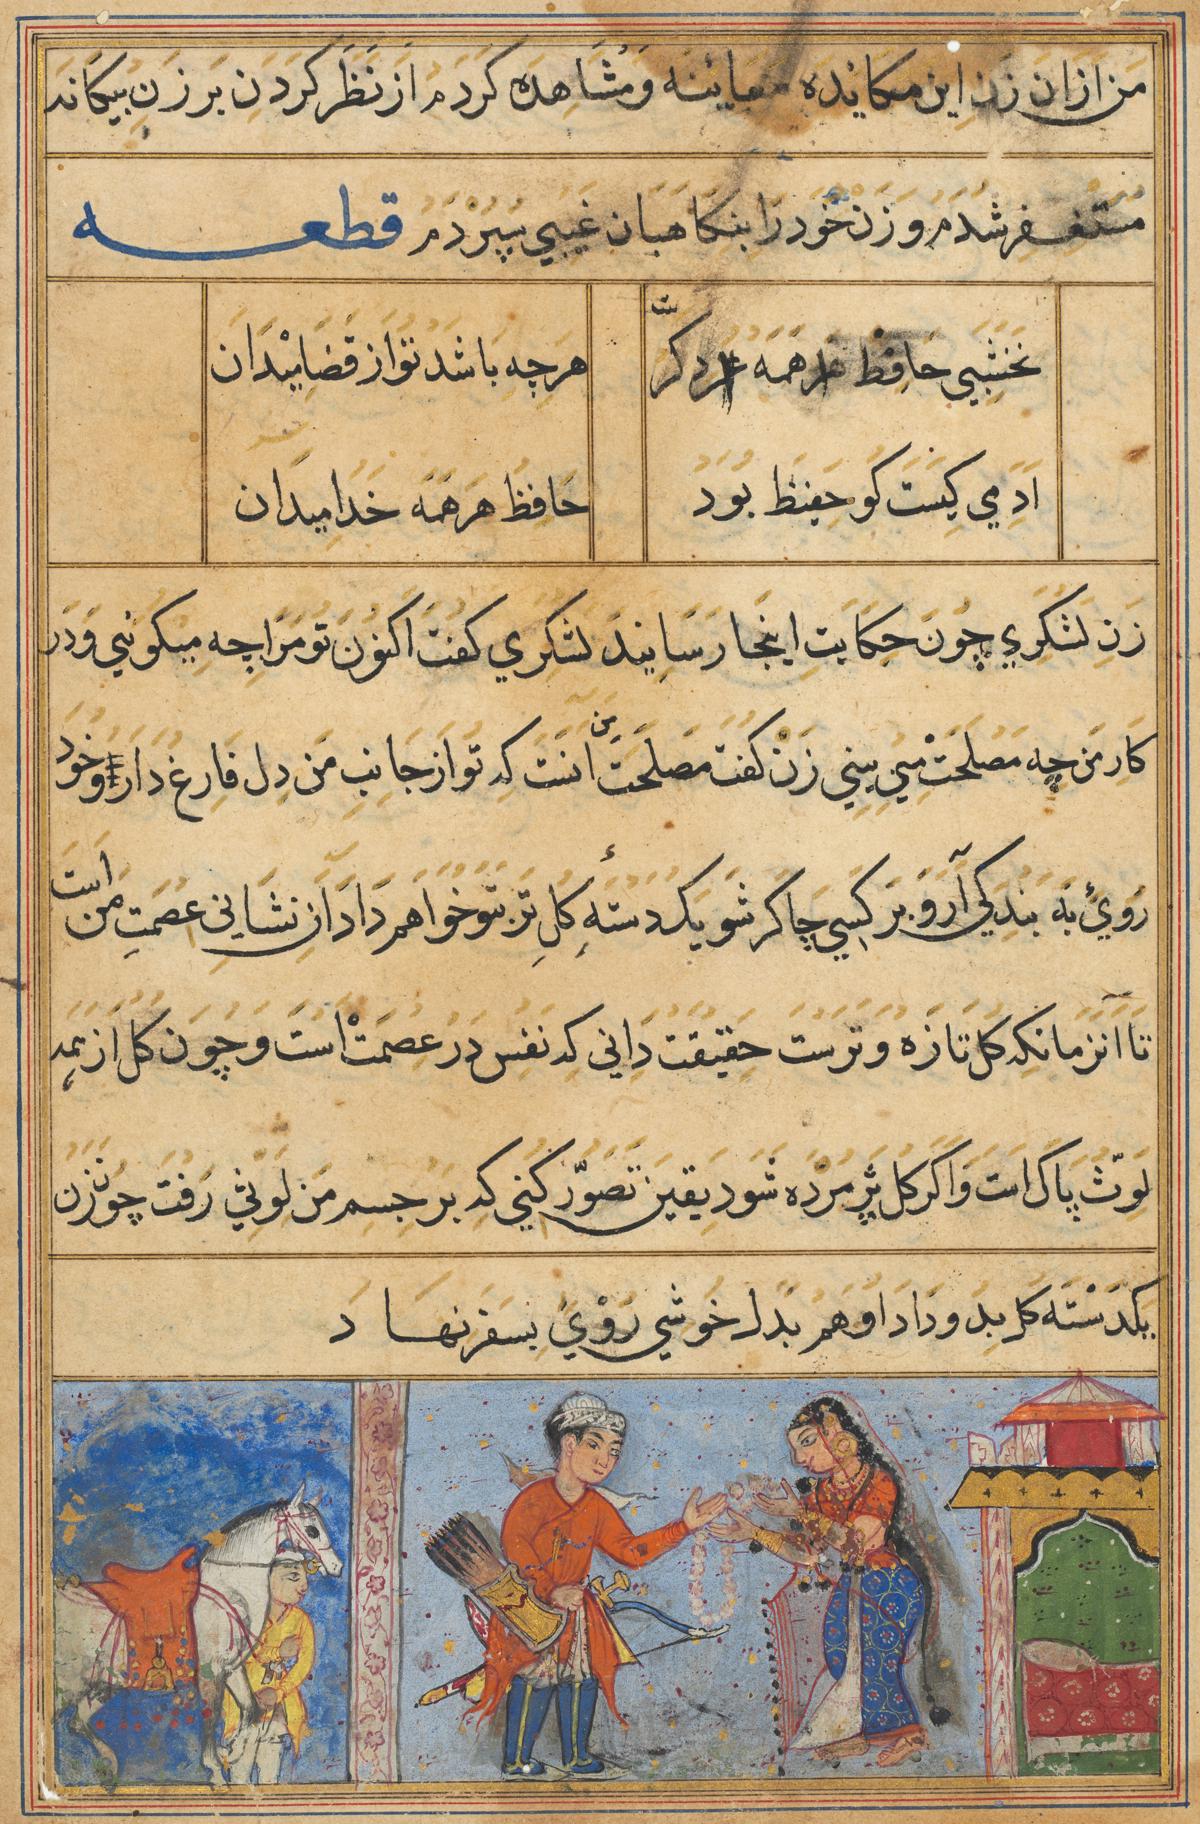 من ازان زن این مکانده معاینه و مشاهده کردم از نظر کردن بر زن بیکانه
مستغفر شدم و زن خود را بنکاهبان غیبی سپردم قطعه
نخشبی حافظ همه هرچه باشد تو از قضا میدان
ادمی کیست کو حفیظ بود حافظ هر همه خدا میدان
زن لشکری چون حکایت اینجا رسانید لشکری کفت اکنون تو مرا چه میکوئی و در
کار من چه مصلحت می بینی زن کفت مصلحت من انست که تو از جانب من دل فارغ دار و خود
روی به بندکی آرو بر کسی چاکر شو یکدسته کل تر بتو خواهم داد آن نشانی عصمت من است
تا انزمانکه کل تازه و ترست حقیقت دانی که نفس در عصمت است و چون کل از همه
لوث پاک است و اکر کل پژمرده شود یقین تصور کنی که بر جسم من لوثی رفت چون زن
یکدسته کل بدو داد او هم بدل خوشی روی بسفر نهاد